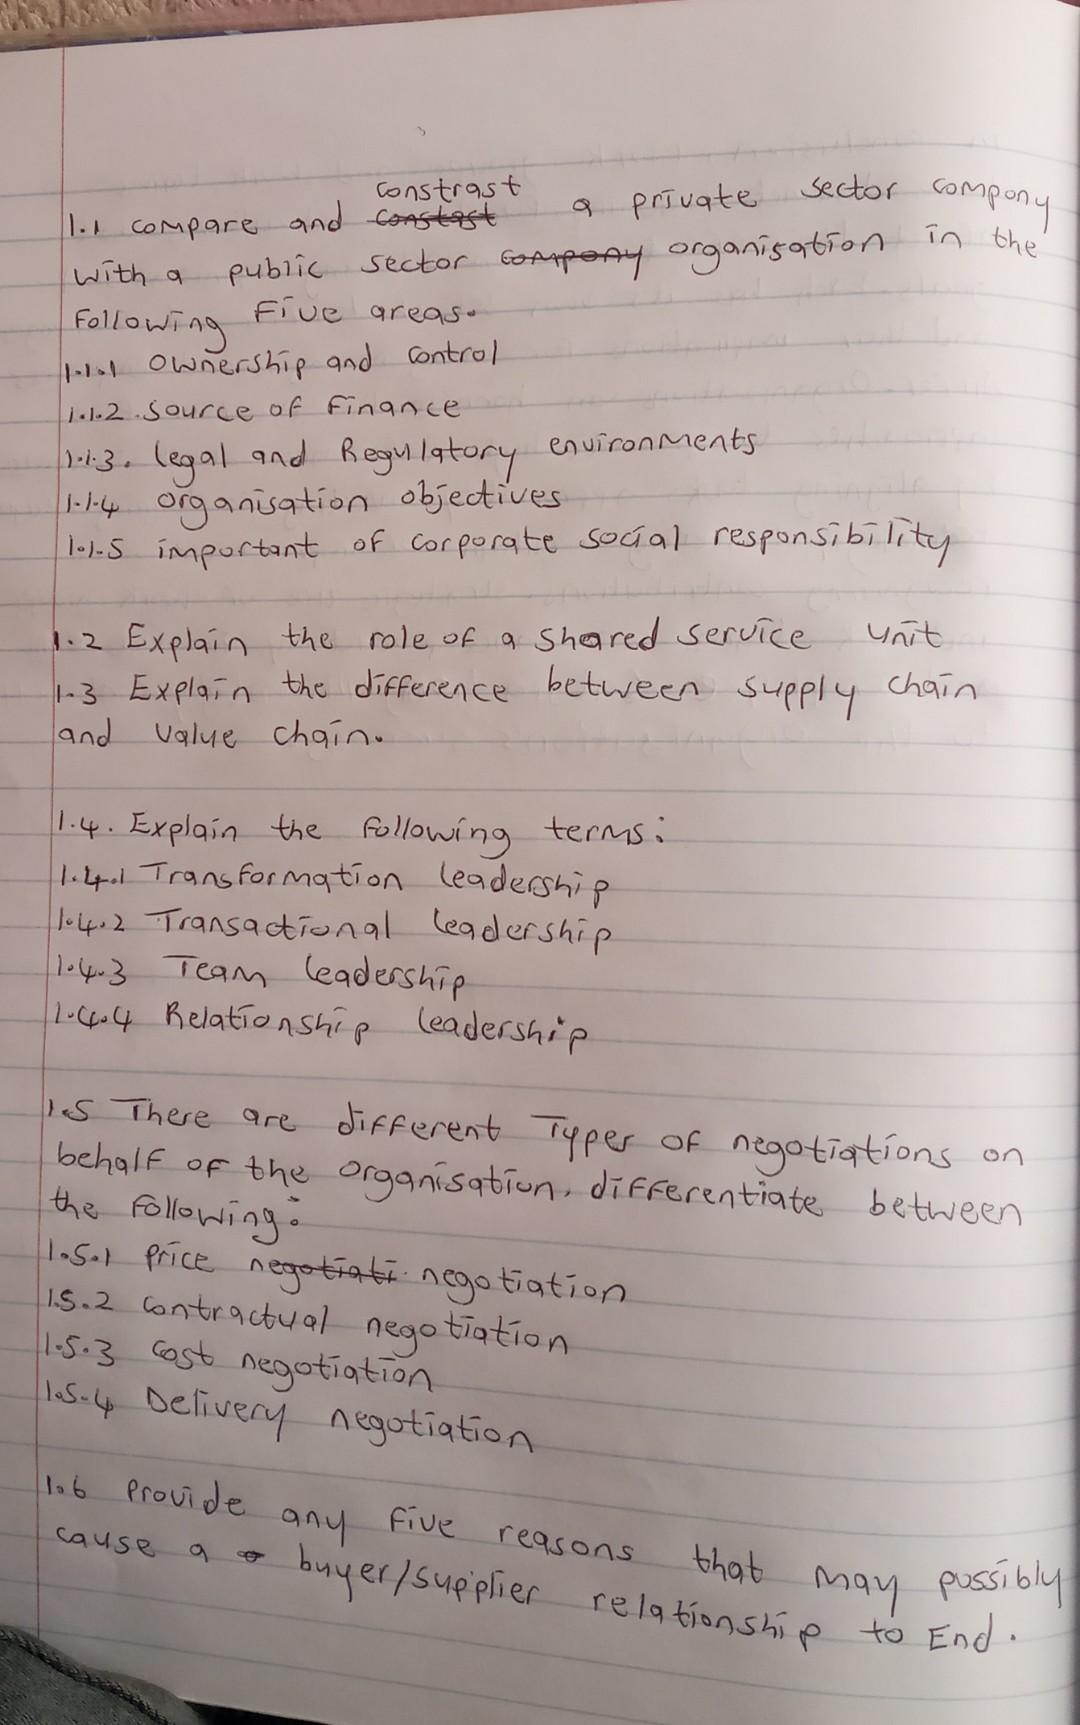 constrast
1.1 compare and constast a private sector compony
with a public sector compony organisation in the
following five areas.
1.1.1 Ownership and control
1.1.2. source of finance
1.1.3. legal and Regulatory environments
1.1.4 organisation objectives
1.1.5 important of corporate social responsibility
1.2 Explain the role of a shared service unit
1.3 Explain the difference between supply chain
and value chain.
1.4. Explain the following terms:
1.4.1 Transformation leadership
1.4.2 Transactional leadership
1.4.3 Team leadership
1.4.4 Relationship leadership
1.5 There are different Types of negotiations on
behalf of the organisation, differentiate between
the following:
1.5.1 price negotiati. negotiation
1.5.2 contractual negotiation
1.5.3 cost negotiation
1.5.4 Delivery negotiation
1.6 Provide any five reasons that may possibly
cause a buyer/supplier relationship to End.